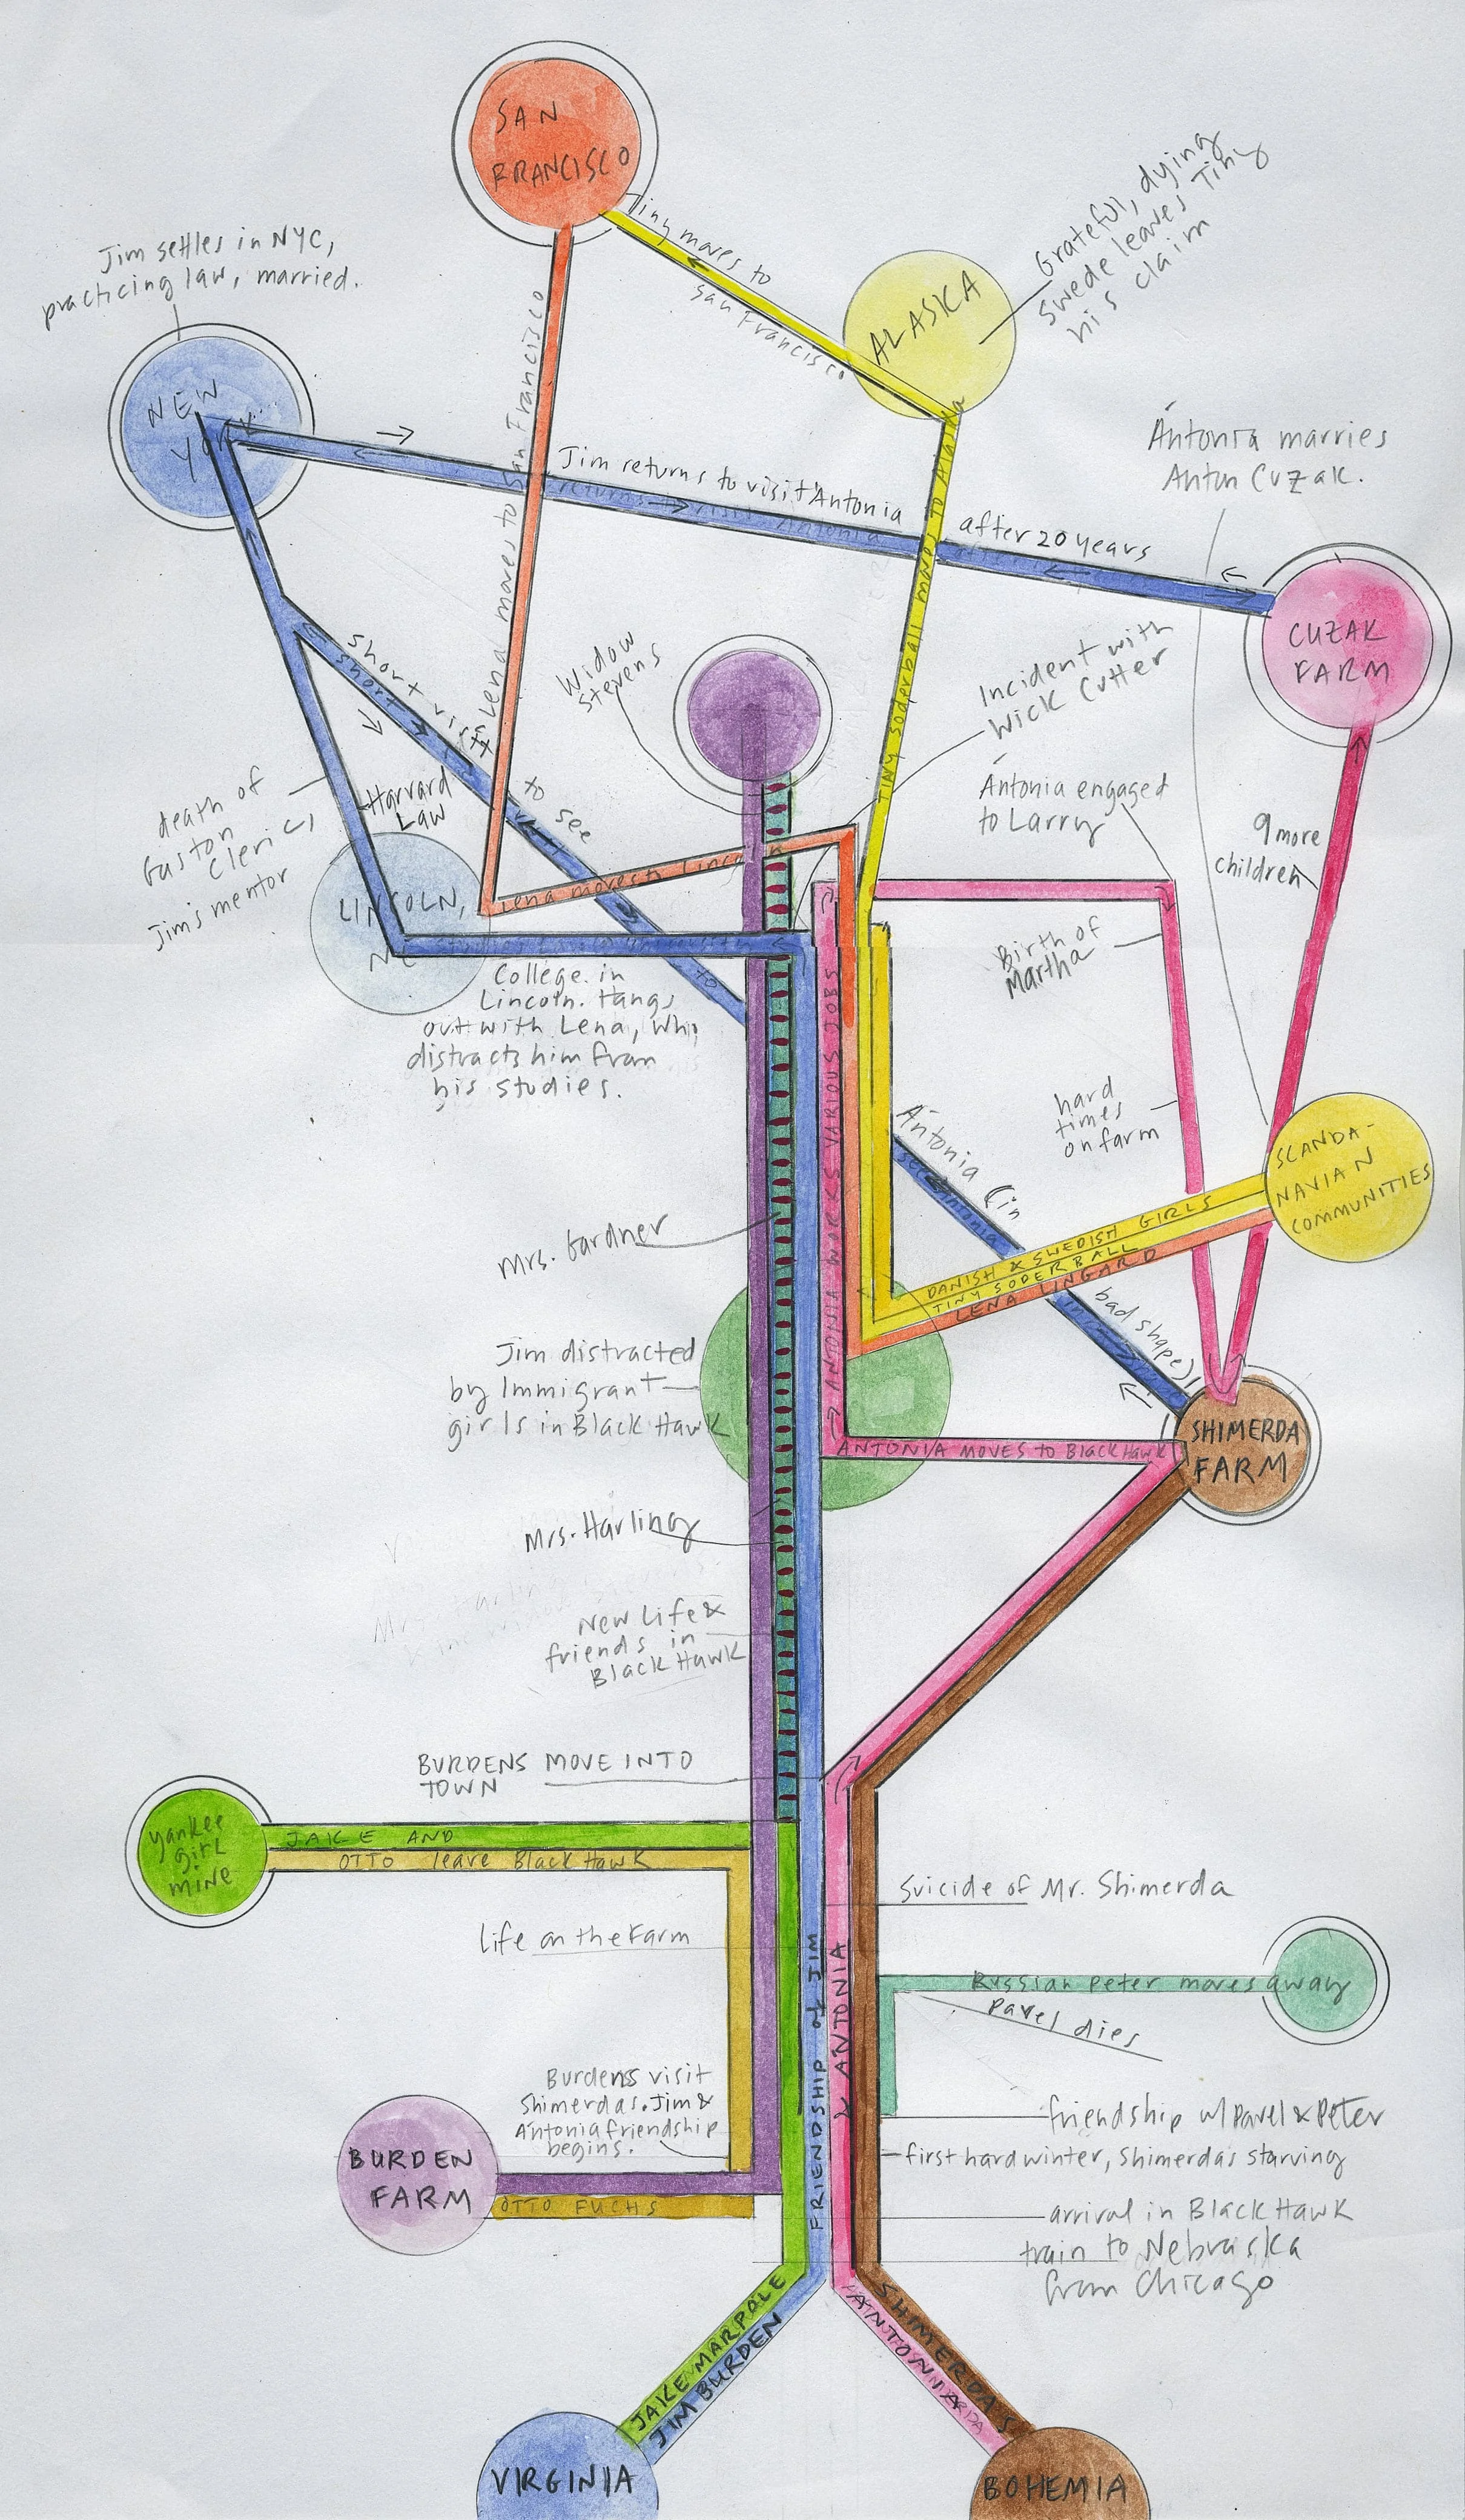 SAN
FRANCISCO
Tiny moves to
San Francisco
ALASKA
Grateful, dying
Swede leaves Tiny
his claim
Jim settles in NYC,
practicing law, married.
NEW
YORK
Lena moves to San Francisco
Jim returns to visit Ántonia
after 20 years
returns to visit Antonia
Ántonia marries
Anton Cuzak.
CUZAK
FARM
Tiny Soderball moves to Alaska
Widow
Stevens
Incident with
Wick Cutter
Ántonia engaged
to Larry
9 more
children
short visit
to see
Ántonia (in
bad shape)
death of
Gaston
Cleric,
Jim's mentor
Harvard
Law
LINCOLN,
Lena moves to Lincoln
College in
Lincoln. Hangs
out with Lena, who
distracts him from
his studies.
Birth of
Martha
hard
times
on farm
SCANDA-
NAVIAN
COMMUNITIES
DANISH & SWEDISH GIRLS
TINY SODERBALL
LENA LINGARD
ANTONIA WORKS VARIOUS JOBS
Mrs. Gardner
Jim distracted
by Immigrant
girls in Black Hawk
ANTONIA MOVES TO Black Hawk
SHIMERDA
FARM
Mrs. Harling
New Life &
friends in
Black Hawk
BURDENS MOVE INTO
TOWN
Yankee
Girl
Mine
JAKE AND
OTTO leave Black Hawk
Suicide of Mr. Shimerda
Life on the Farm
Russian Peter moves away
Pavel dies
FRIENDSHIP of JIM
& ANTONIA
Burdens visit
Shimerdas. Jim &
Ántonia friendship
begins.
friendship w/ Pavel & Peter
first hard winter, Shimerdas starving
BURDEN
FARM
OTTO FUCHS
arrival in Black Hawk
train to Nebraska
from Chicago
JAKE MARPOLE
JIM BURDEN
SHIMERDAS
VIRGINIA
BOHEMIA